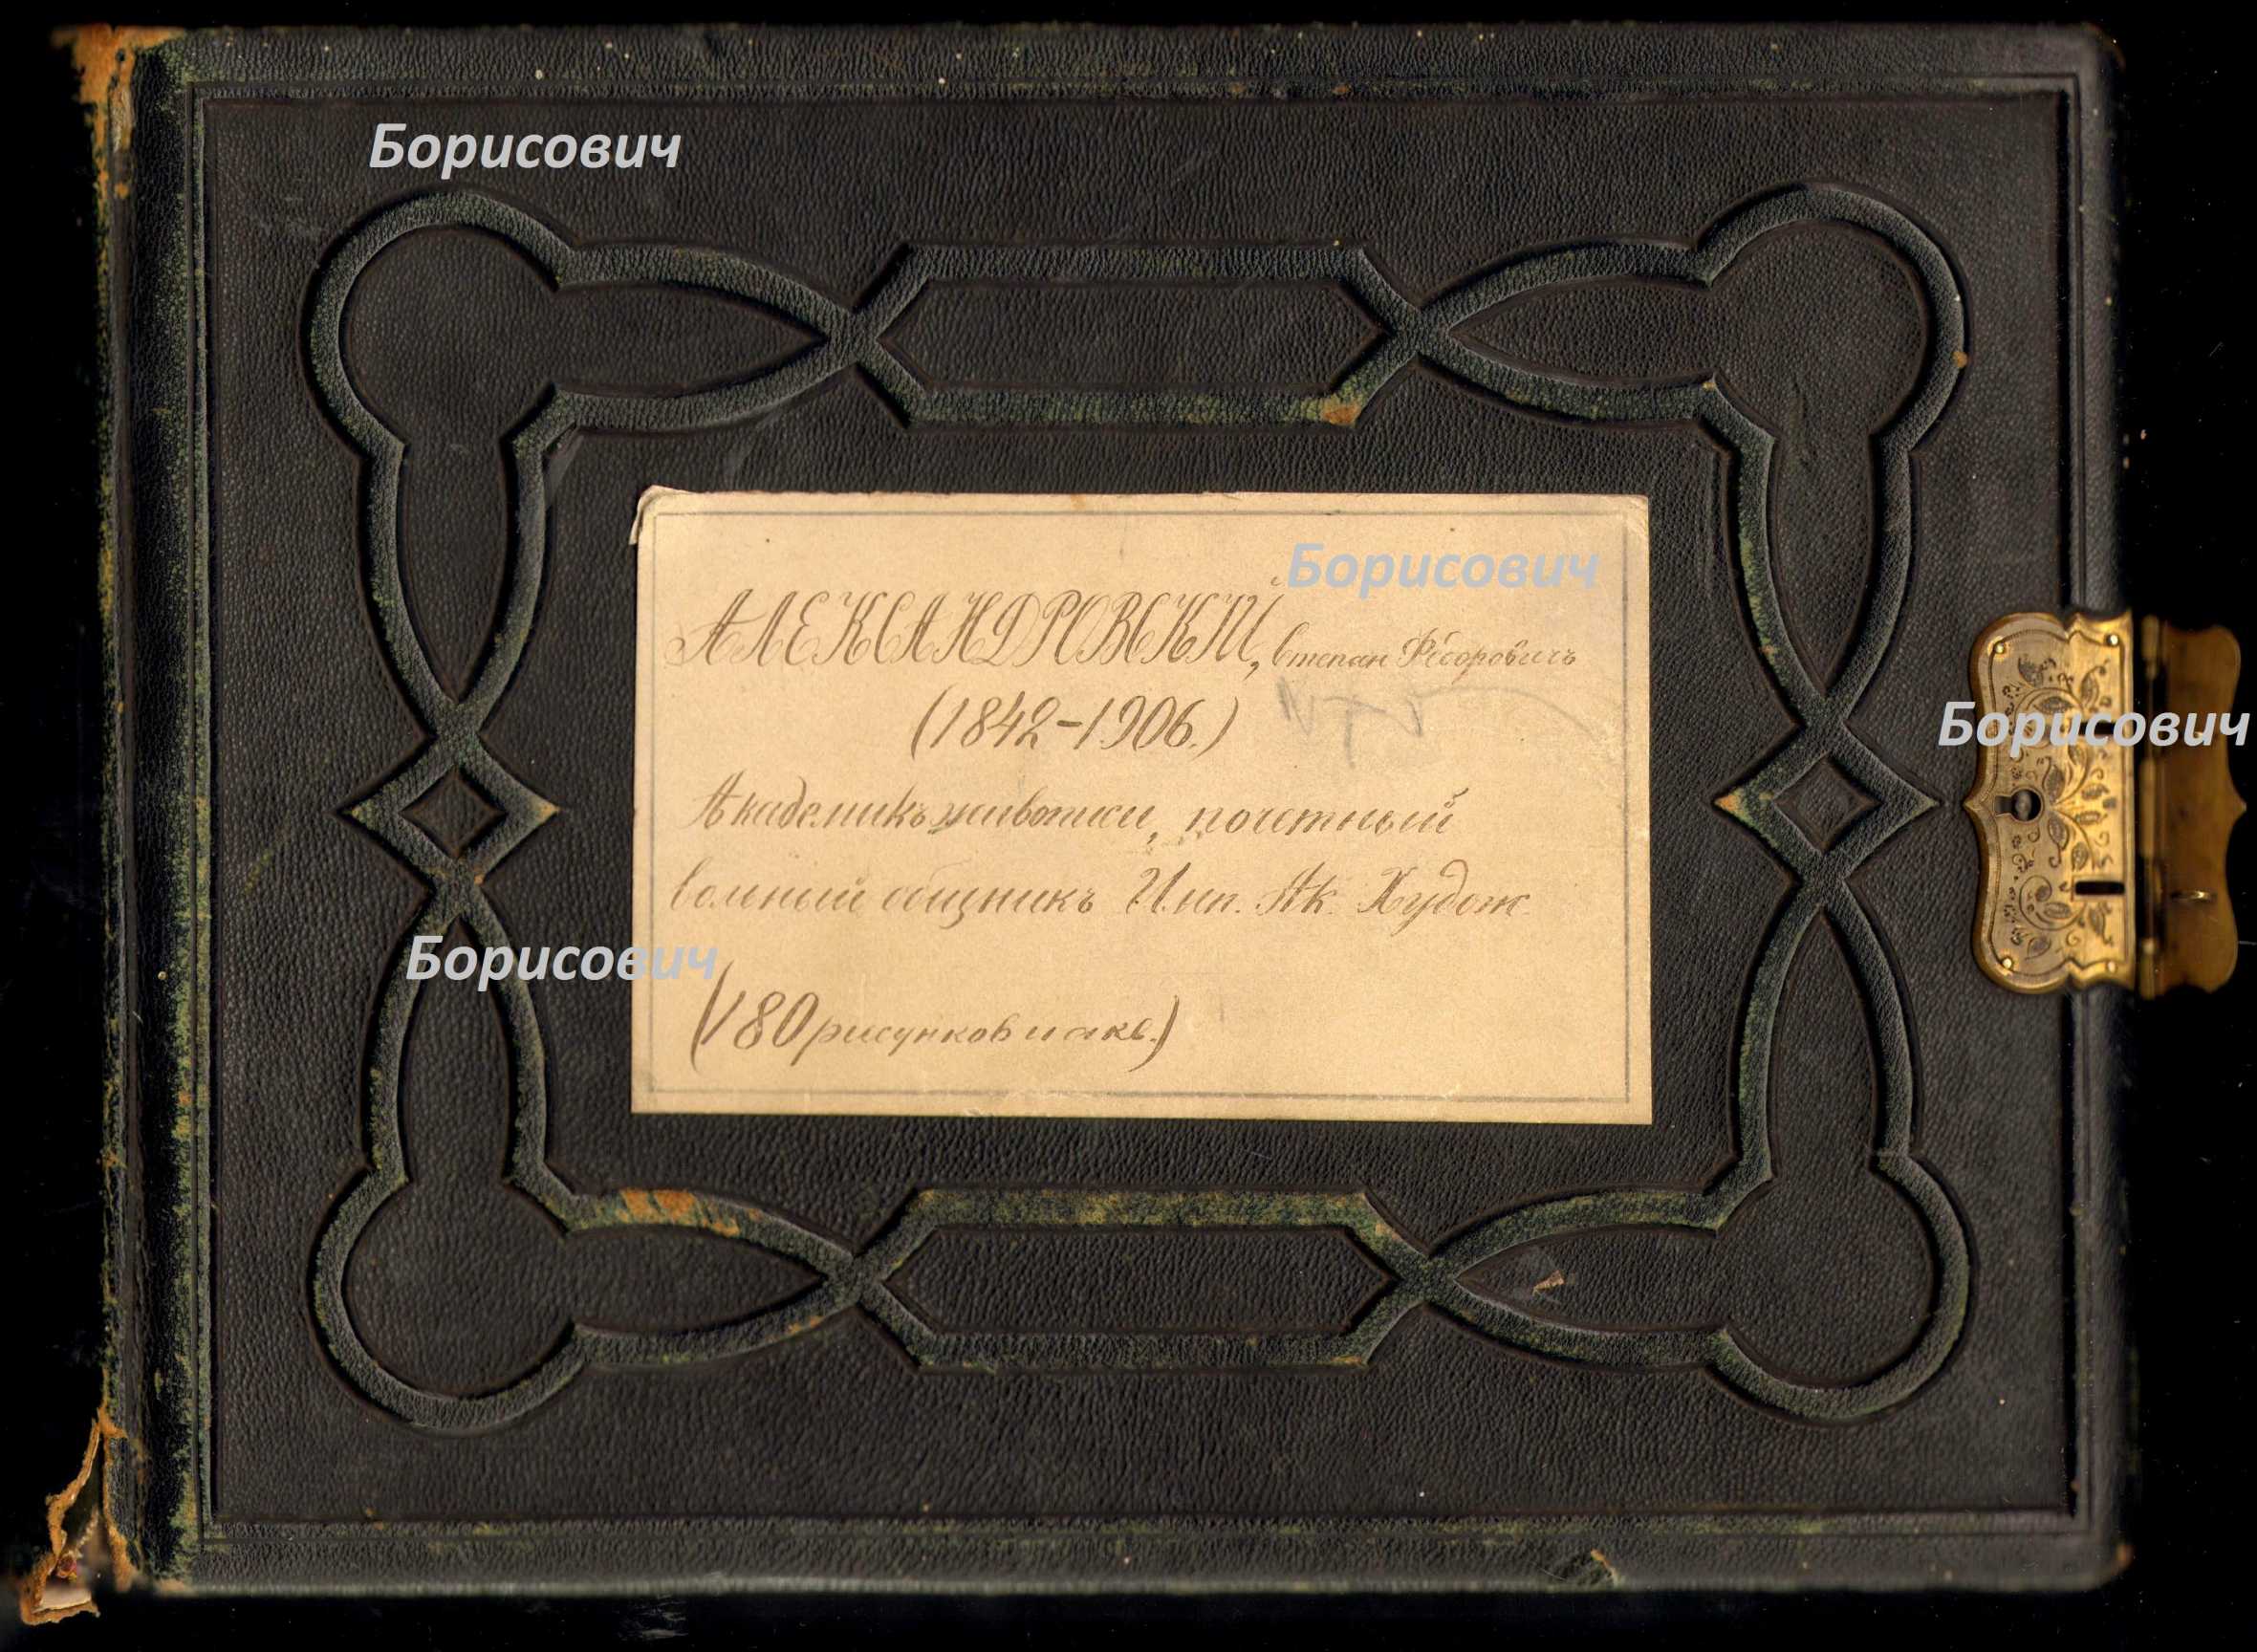 Борисович
Борисович
АЛЕКСАНДРОВСКІЙ, Степан Фёдоровичъ
(1842-1906.)
Борисович
Академикъ живописи, почетный
вольный общникъ Имп. Ак. Худож.
Борисович
(180 рисунков и акв.)